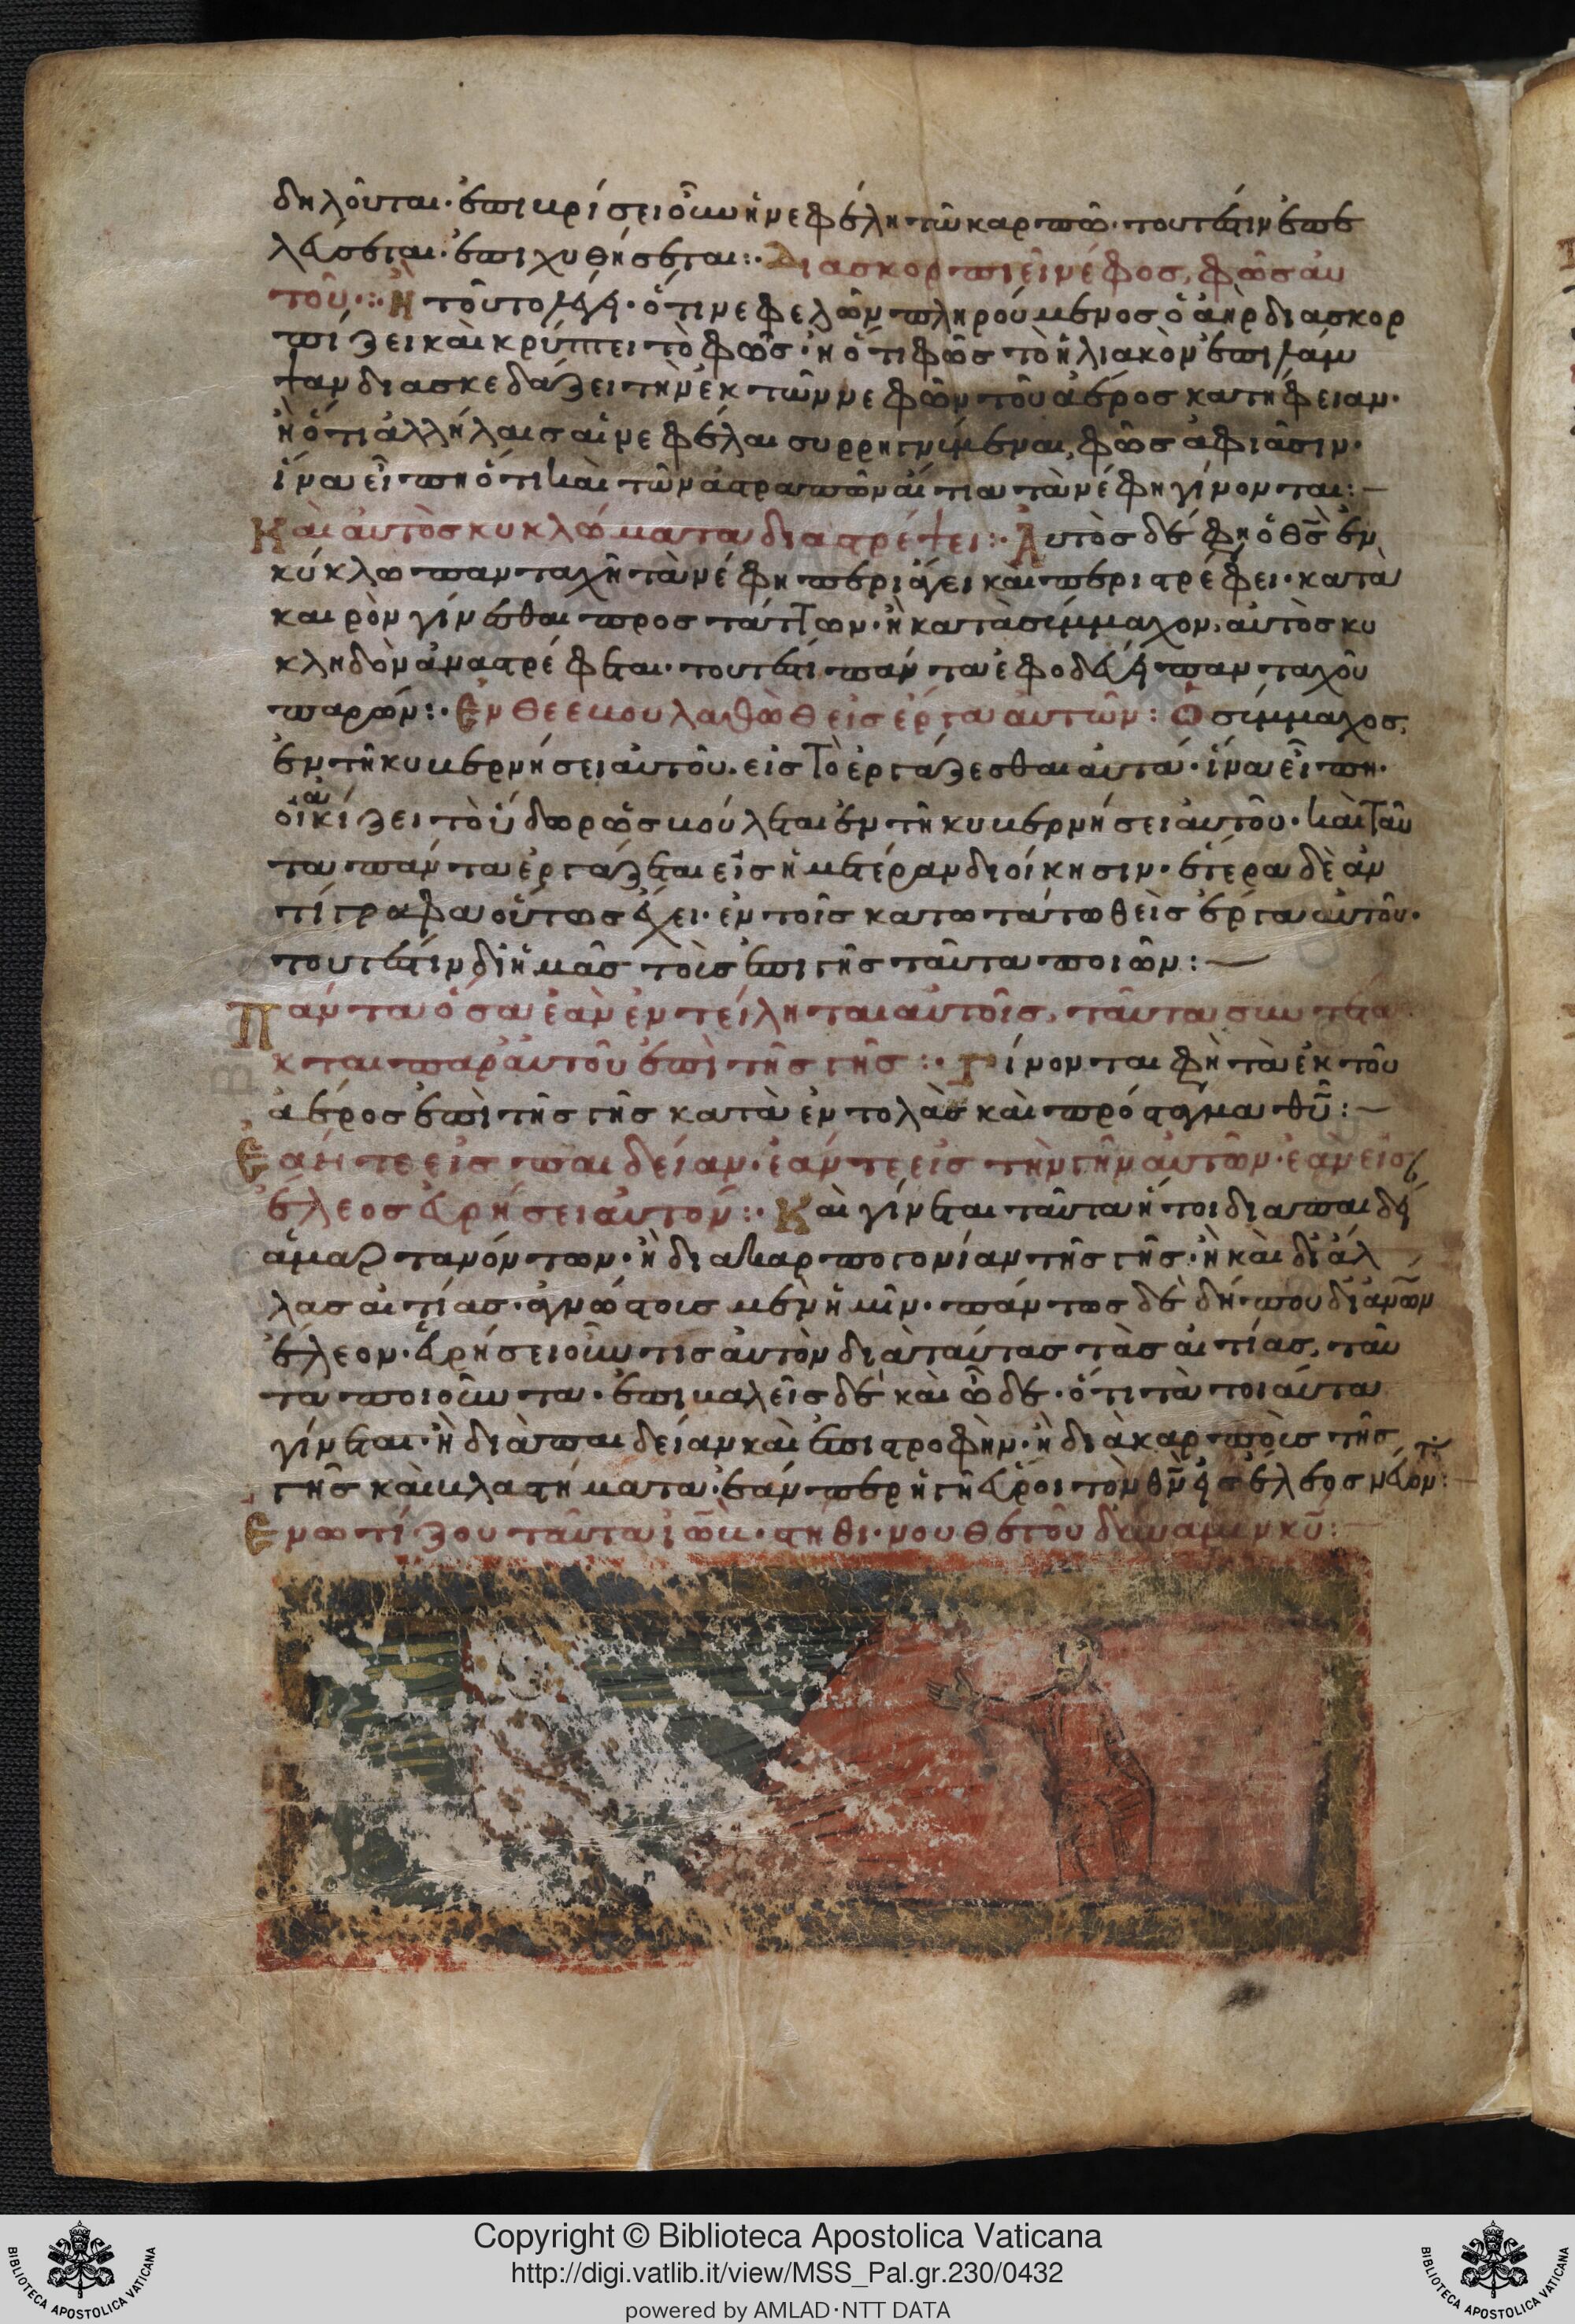 δηλοῦται· ἐπικρίσει οὖν ἡ νεφέλη τῶ καρπῶ· τουτέστιν ἐπε
λεύσεται· ἐπιχυθήσεται :· Διασκορπιεῖ νέφος, φῶς αὐ
τοῦ :· Ἢ τοῦτο λέγει· ὅτι νεφελῶν πληρούμενος ὁ ἀὴρ διασκορ
πίζει καὶ κρύπτει τὸ φῶς· ἢ ὅτι φῶς τὸ ἡλιακὸν ἐπιλάμ
ψαν διασκεδάζει τὴν ἐκ τῶν νεφῶν τοῦ ἀέρος κατήφειαν·
ἢ ὅτι ἀλλήλαις αἱ νεφέλαι συρρηγνύμεναι, φῶς ἀφιᾶσιν·
ἵνα εἴπη ὅτι καὶ τῶν ἀστραπῶν αἴτια τὰ νέφη γίνονται :—
Καὶ αὐτὸς κυκλώματα διαστρέψει :· Αὐτὸς δέ φη ὁ θς ἐν
κύκλω πανταχῆ τὰ νέφη περιάγει καὶ περιστρέφει· κατὰ
καιρὸν γίνεσθαι προστάττων· ἢ κατὰ σύμμαχον, αὐτὸς κυ
κληδὸν ἀναστρέφεται· τουτέστι πάντα ἐφοδεύει πανταχοῦ
παρών :· Ἐν θεεβουλαθὼθ εἰς ἔργα αὐτῶν : Ὁ σύμμαχος,
ἐν τῆ κυβερνήσει αὐτοῦ· εἰς τὸ ἐργάζεσθαι αὐτά· ἵνα εἴπη·
οἰακίζει τὸ ὕδωρ ὡς βούλεται ἐν τῆ κυβερνήσει αὐτοῦ· καὶ ταῦ
τα πάντα ἐργάζεται εἰς ἡμετέραν διοίκησιν· ἕτερα δὲ ἀν
τίγραφα οὕτως ἔχει· ἐν τοῖς κατωτάτω θεὶς ἔργα αὐτοῦ·
τουτέστιν δι' ἡμᾶς τοὺς ἐπὶ γῆς ταῦτα ποιῶν :—
Πάντα ὅσα ἐὰν ἐντείληται αὐτοῖς, ταῦτα συντέτα
κται παρ' αὐτοῦ ἐπὶ τῆς γῆς :· Γίνονται φη τὰ ἐκ τοῦ
ἀέρος ἐπὶ τῆς γῆς κατὰ ἐντολὰς καὶ πρόσταγμα θυ :—
Ἐάν τε εἰς παιδείαν· ἐάν τε εἰς τὴν γῆν αὐτῶν· ἐὰν εἰς
ἔλεος εὑρήσει αὐτόν :· Καὶ γίνεται ταῦτα ἤτοι δια παιδεί
ἁμαρτανόντων· ἢ δια καρπογονίαν τῆς γῆς· ἢ καὶ δι' ἄλ
λας αἰτίας· ἀγνώστοις μὲν ἡμῖν· πάντως δὲ δήπου
ἔλεον· εὑρήσει οὖν τίς αὐτὸν διὰ ταύτας τὰς αἰτίας, ταῦ
τα ποιοῦντα· ἐπιβαλεῖς δὲ καὶ ὧδε· ὅτι τὰ τοιαῦτα
γίνεται· ἢ διὰ παιδείαν καὶ ἐπιστροφὴν· ἢ διὰ καρποὺς τῆς
γῆς καὶ βλαστήματα· ἐάνπερ ἡ γῆ εὕροι τὸν θν
Ἐνωτίζου ταῦτα ἰώβ· στῆθι· νουθετοῦ δύναμιν κυ :—
Copyright © Biblioteca Apostolica Vaticana
http://digi.vatlib.it/view/MSS_Pal.gr.230/0432
powered by AMLAD·NTT DATA
BIBLIOTECA APOSTOLICA VATICANA
BIBLIOTECA APOSTOLICA VATICANA